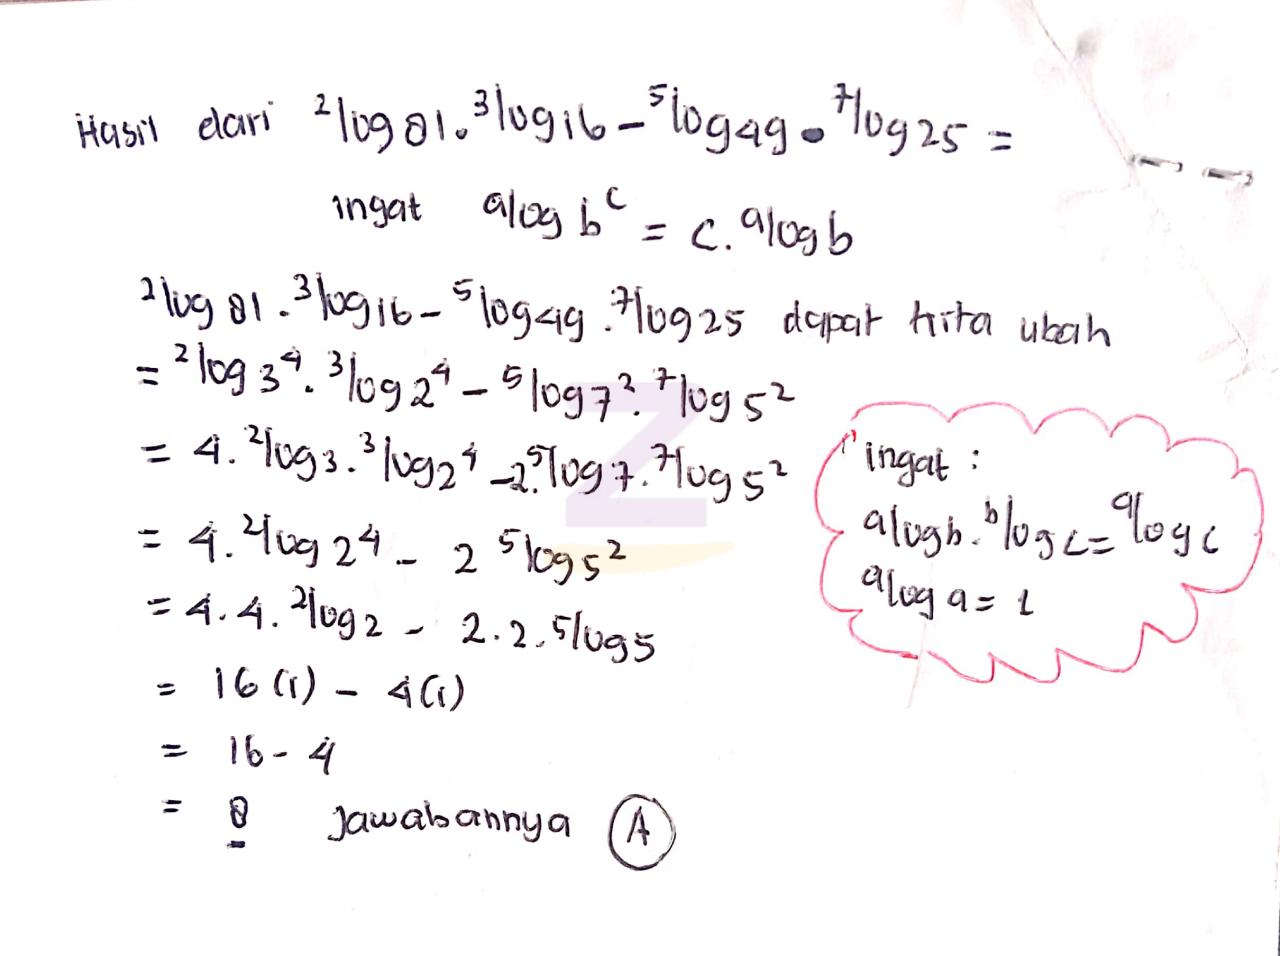 Hasil dari ²log 81 . ³log 16 - ⁵log 49 . ⁷log 25 =
ingat ᵃlog bᶜ = c. ᵃlog b
²log 81 . ³log 16 - ⁵log 49 . ⁷log 25 dapat kita ubah
= ²log 3⁴ . ³log 2⁴ - ⁵log 7² . ⁷log 5²
= 4. ²log 3 . ³log 2⁴ - 2. ⁵log 7 . ⁷log 5²
= 4. ²log 2⁴ - 2 ⁵log 5²
= 4. 4. ²log 2 - 2. 2. ⁵log 5
= 16 (1) - 4 (1)
= 16 - 4
= 8 Jawabannya A
ingat :
ᵃlog b . ᵇlog c = ᵃlog c
ᵃlog a = 1
Z